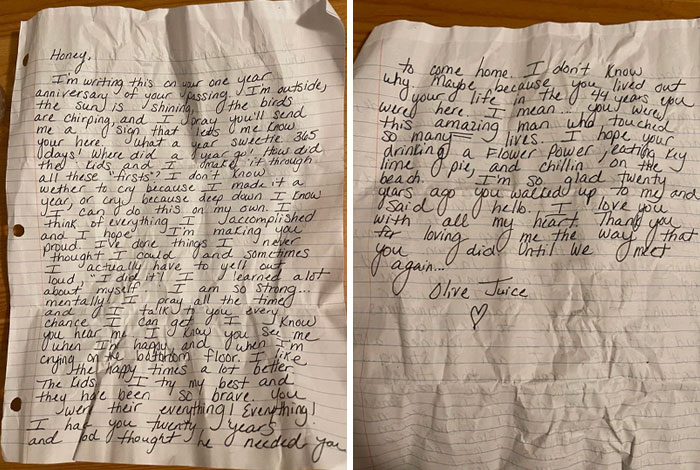 Honey,
I'm writing this on your one year
anniversary of your passing. I'm outside,
the sun is shining, the birds
are chirping, and I pray you'll send
me a sign that lets me know
your here. What a year sweetie. 365
days! Where did a year go? How did
the kids and I make it through
all these "firsts"? I don't know
wether to cry because I made it a
year, or cry because deep down I know
I can do this on my own. I
think of everything I accomplished
and I hope I'm making you
proud. I've done things I never
thought I could and sometimes
I actually have to yell out
loud, I did it! I learned a lot
about myself. I am so strong...
mentally! I pray all the time
and I talk to you every
chance I can get. I know
you hear me. I know you see me
when I'm happy and when I'm
crying on the bathroom floor. I like
the happy times a lot better.
The kids. I try my best and
they have been so brave. You
were their everything! Everything!
I had you twenty years
and God thought he needed you
to come home. I don't know
why. Maybe because you lived out
your life in the 44 years you
were here. I mean... you were
this amazing man who touched
so many lives. I hope your
drinking a Flower Power, eating Key
lime pie, and chillin' on the
beach. I'm so glad twenty
years ago you walked up to me and
said hello. I love you
with all my heart. Thank you
for loving me the way that
you did. Until we meet
again...
Olive Juice